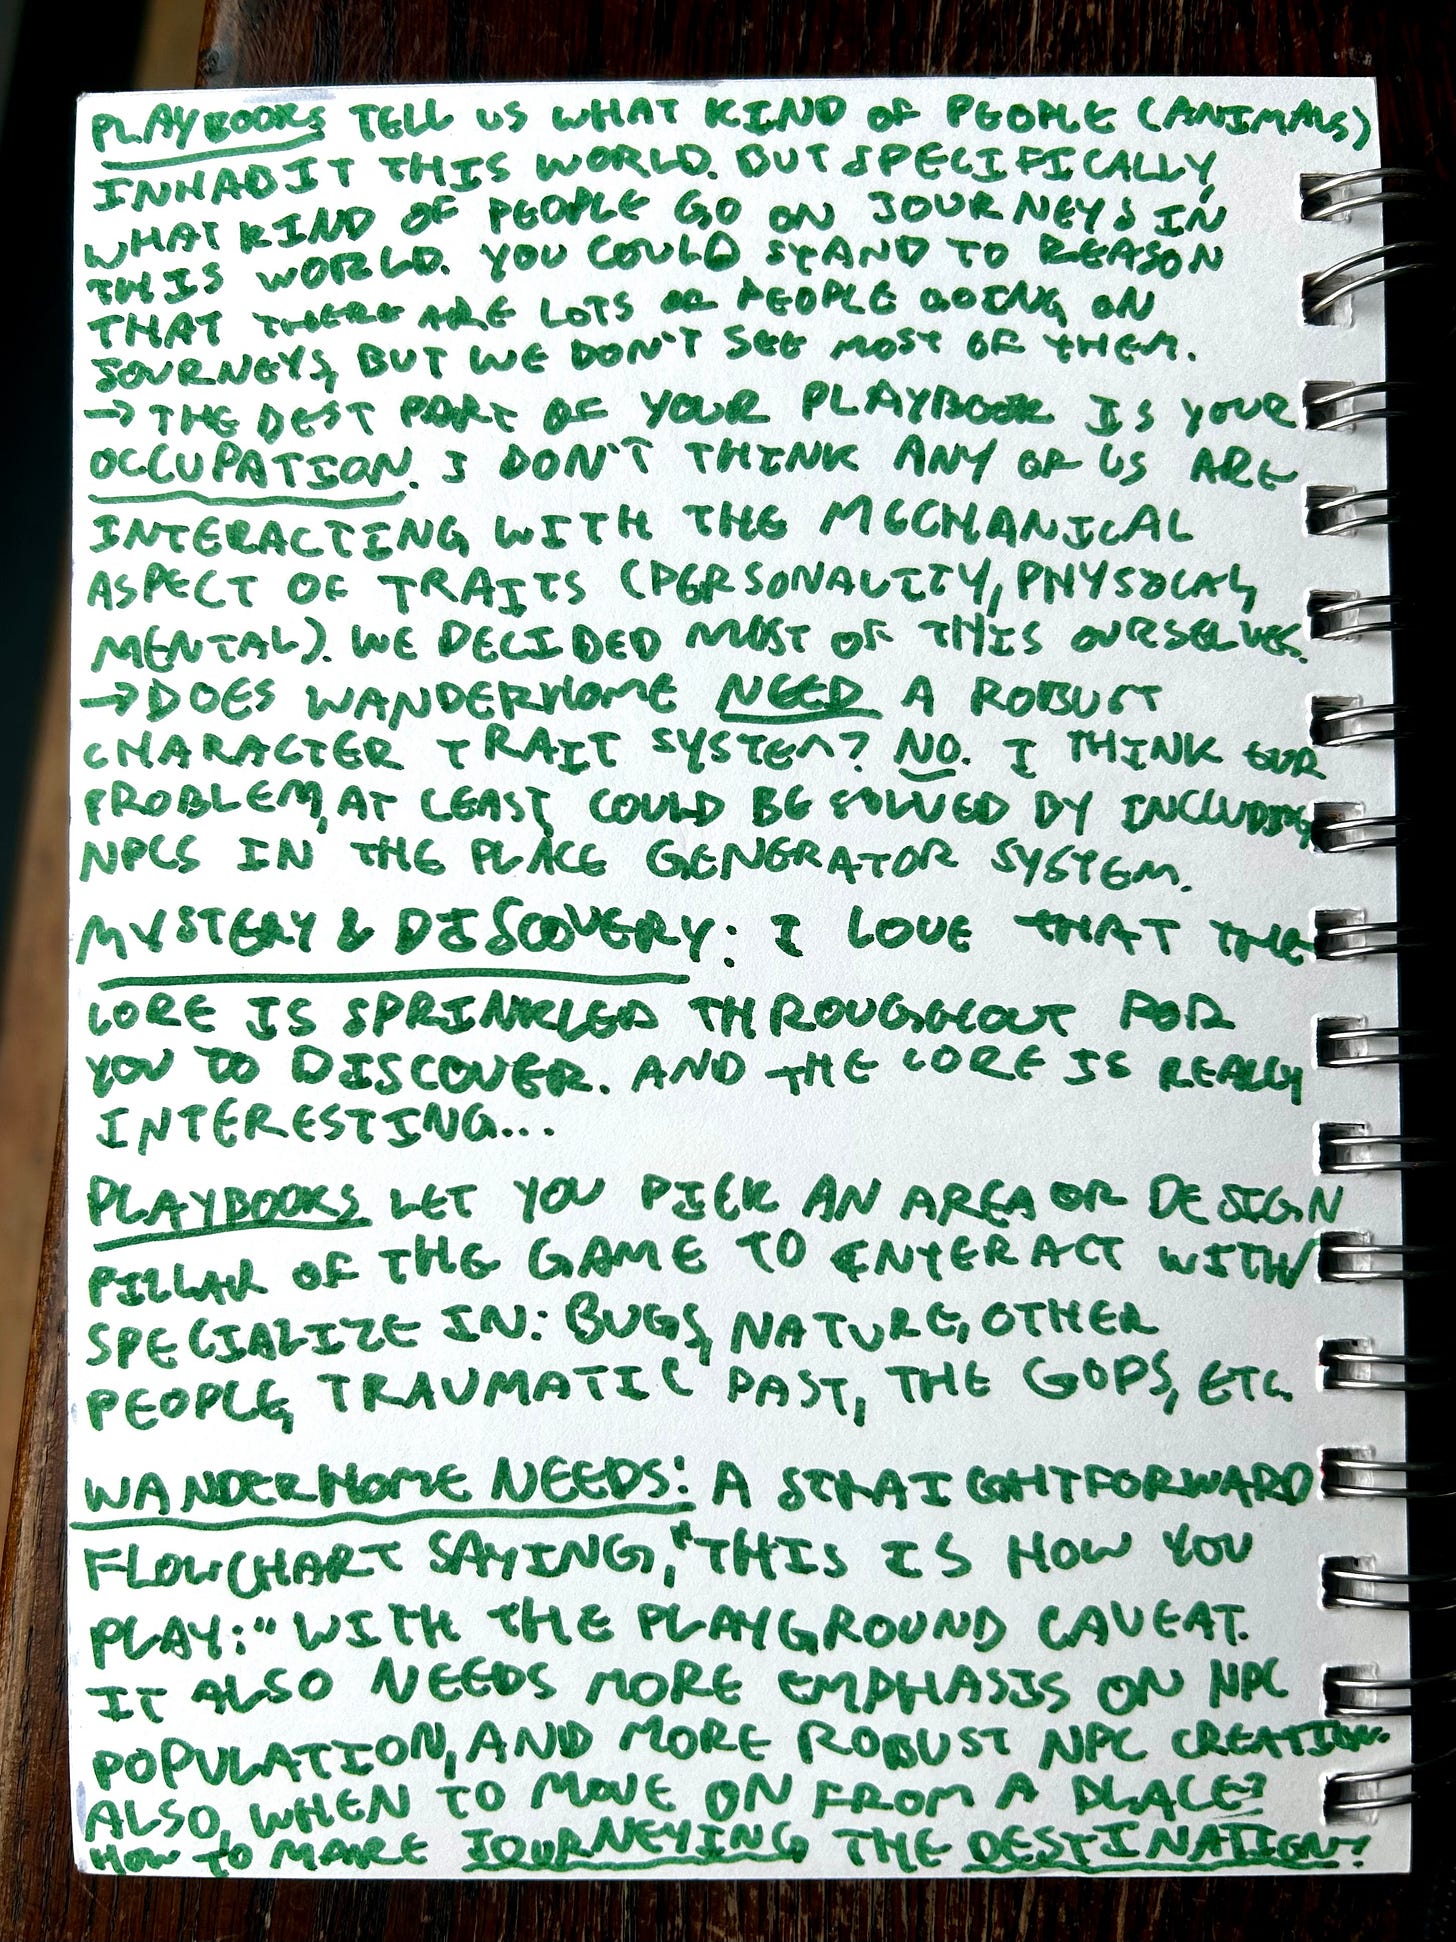 PLAYBOOKS TELL US WHAT KIND OF PEOPLE (ANIMALS)
INHABIT THIS WORLD. BUT SPECIFICALLY,
WHAT KIND OF PEOPLE GO ON JOURNEYS IN
THIS WORLD. YOU COULD STAND TO REASON
THAT THERE ARE LOTS OF PEOPLE GOING ON
JOURNEYS, BUT WE DON'T SEE MOST OF THEM.
→ THE BEST PART OF YOUR PLAYBOOK IS YOUR
OCCUPATION. I DON'T THINK ANY OF US ARE
INTERACTING WITH THE MECHANICAL
ASPECT OF TRAITS (PERSONALITY, PHYSICAL,
MENTAL). WE DECIDED MOST OF THIS OURSELVES.
→ DOES WANDERHOME NEED A ROBUST
CHARACTER TRAIT SYSTEM? NO. I THINK OUR
PROBLEM, AT LEAST, COULD BE SOLVED BY INCLUDING
NPCS IN THE PLACE GENERATOR SYSTEM.
MYSTERY & DISCOVERY: I LOVE THAT THE
LORE IS SPRINKLED THROUGHOUT FOR
YOU TO DISCOVER. AND THE LORE IS REALLY
INTERESTING...
PLAYBOOKS LET YOU PICK AN AREA OR DESIGN
PILLAR OF THE GAME TO INTERACT WITH/
SPECIALIZE IN: BUGS, NATURE, OTHER
PEOPLE, TRAUMATIC PAST, THE GODS, ETC.
WANDERHOME NEEDS: A STRAIGHTFORWARD
FLOWCHART SAYING, "THIS IS HOW YOU
PLAY:" WITH THE PLAYGROUND CAVEAT.
IT ALSO NEEDS MORE EMPHASIS ON NPC
POPULATION, AND MORE ROBUST NPC CREATION.
ALSO, WHEN TO MOVE ON FROM A PLACE?
HOW TO MAKE JOURNEYING THE DESTINATION?